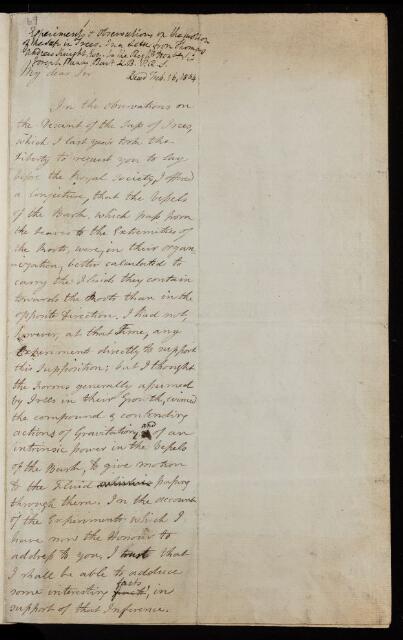 69
Experiments & Observations on the motion
of the Sap in Trees. In a Letter from Thomas
Andrew Knight, Esq. to the Right Honble. Sir
Joseph Banks Bart. K.B. P.R.S.
My dear Sir Read Feb. 16, 1804
In the observations on
the Descent of the Sap of Trees,
which I last year took the
liberty to request you to lay
before the Royal Society, I offered
a conjecture, that the Vessels
of the Bark, which pass from
the leaves to the Extremities of
the Roots, were, in their organ
-ization, better calculated to
carry the Fluids they contain
towards the Roots than in the
opposite Direction. I had not,
however, at that Time, any
Experiment directly to support
this Supposition; but I thought
the Forms generally assumed
by Trees in their Growth, evinced
the compound & contending
actions of Gravitation, and of an
intrinsic power in the Vessels
of the Bark, to give motion
to the Fluid passing
through them. In the account
of the Experiments which I
have now the Honour to
address to you, I trust that
I shall be able to adduce
some interesting facts, in
support of that Inference.